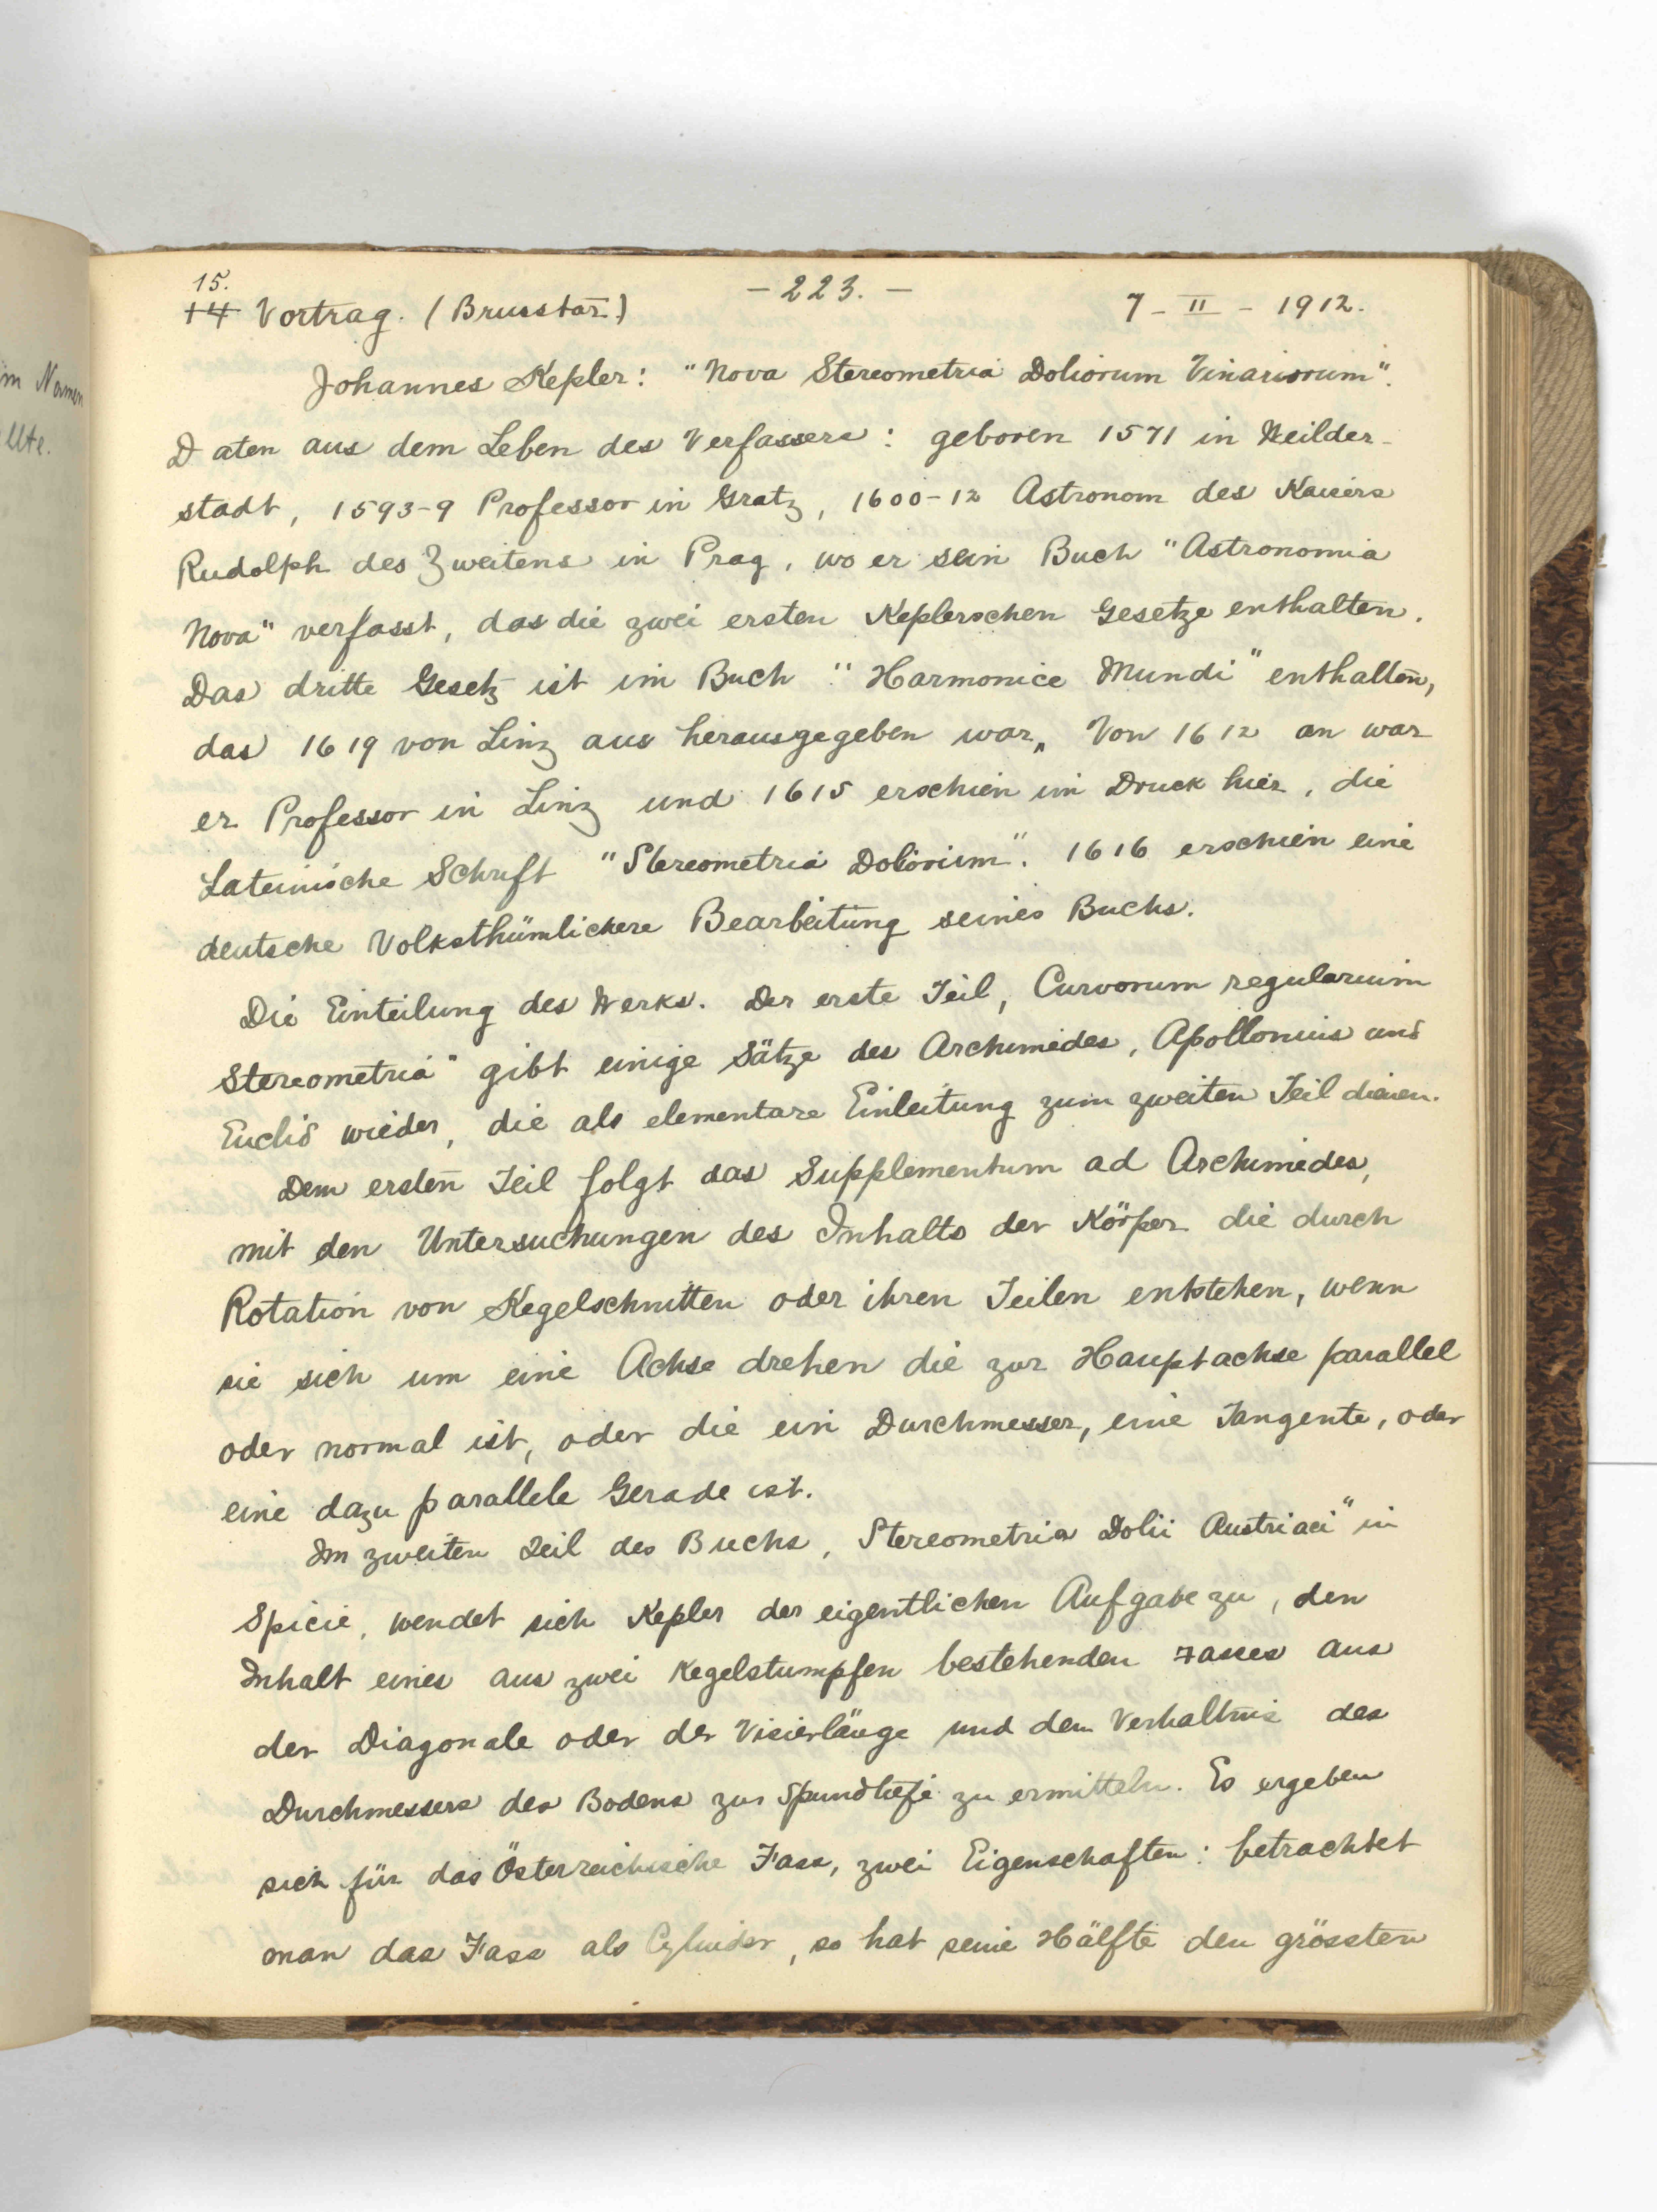 m Namen
llte.
15.
14 Vortrag. (Brusstar.)
- 223. -
7 - II - 1912.
Johannes Kepler: "Nova Stereometria Doliorum Vinariorum".
Daten aus dem Leben des Verfassers: geboren 1571 in Weilder-
stadt, 1593-9 Professor in Gratz, 1600-12 Astronom des Kaisers
Rudolph des Zweitens in Prag, wo er sein Buch "Astronomia
Nova" verfasst, das die zwei ersten Keplerschen Gesetze enthalten.
Das dritte Gesetz ist im Buch "Harmonice Mundi" enthalten,
das 1619 von Linz aus herausgegeben war. Von 1612 an war
er Professor in Linz und 1615 erschien im Druck hier, die
Lateinische Schrift "Stereometria Doliorium". 1616 erschien eine
deutsche Volksthümlichere Bearbeitung seines Buchs.
Die Einteilung des Werks. Der erste Teil, Curvorum regularium
Stereometria" gibt einige Sätze des Archimedes, Apollonius und
Euclid wieder, die als elementare Einleitung zum zweiten Teil dienen.
Dem ersten Teil folgt das Supplementum ad Archimedes,
mit den Untersuchungen des Inhalts der Körper die durch
Rotation von Kegelschnitten oder ihren Teilen entstehen, wenn
sie sich um eine Achse drehen die zur Hauptachse parallel
oder normal ist, oder die ein Durchmesser, eine Tangente, oder
eine dazu parallele Gerade ist.
Im zweiten Teil des Buchs, Stereometria Dolii Austriaci" in
Spicie, wendet sich Kepler der eigentlichen Aufgabe zu, den
Inhalt eines aus zwei Kegelstumpfen bestehenden Fasses aus
der Diagonale oder der Visierlänge und dem Verhaltnis des
Durchmessers des Bodens zur Spundtiefe zu ermitteln. Es ergeben
sich für das Österreichische Fass, zwei Eigenschaften: betrachtet
man das Fass als Cylinder, so hat seine Hälfte den grössten